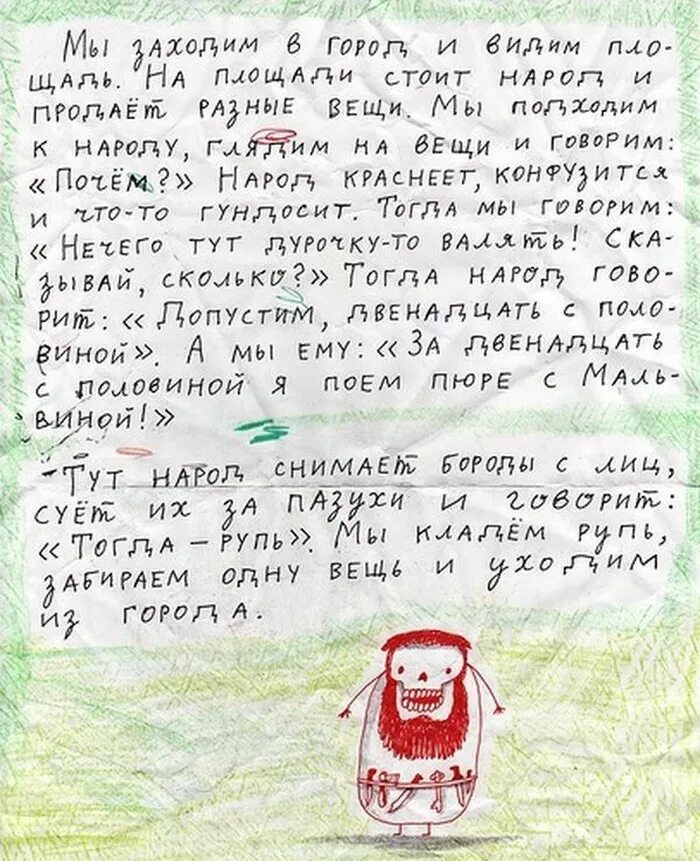 Мы заходим в город и видим пло-
щадь. На площади стоит народ и
продаёт разные вещи. Мы подходим
к народу, глядим на вещи и говорим:
«Почём?» Народ краснеет, конфузится
и что-то гундосит. Тогда мы говорим:
«Нечего тут дурочку-то валять! Ска-
зывай, сколько?» Тогда народ гово-
рит: «Допустим, двенадцать с поло-
виной». А мы ему: «За двенадцать
с половиной я поем пюре с Маль-
виной!»
Тут народ снимает бороды с лиц,
суёт их за пазухи и говорит:
«Тогда – рупь». Мы кладём рупь,
забираем одну вещь и уходим
из города.